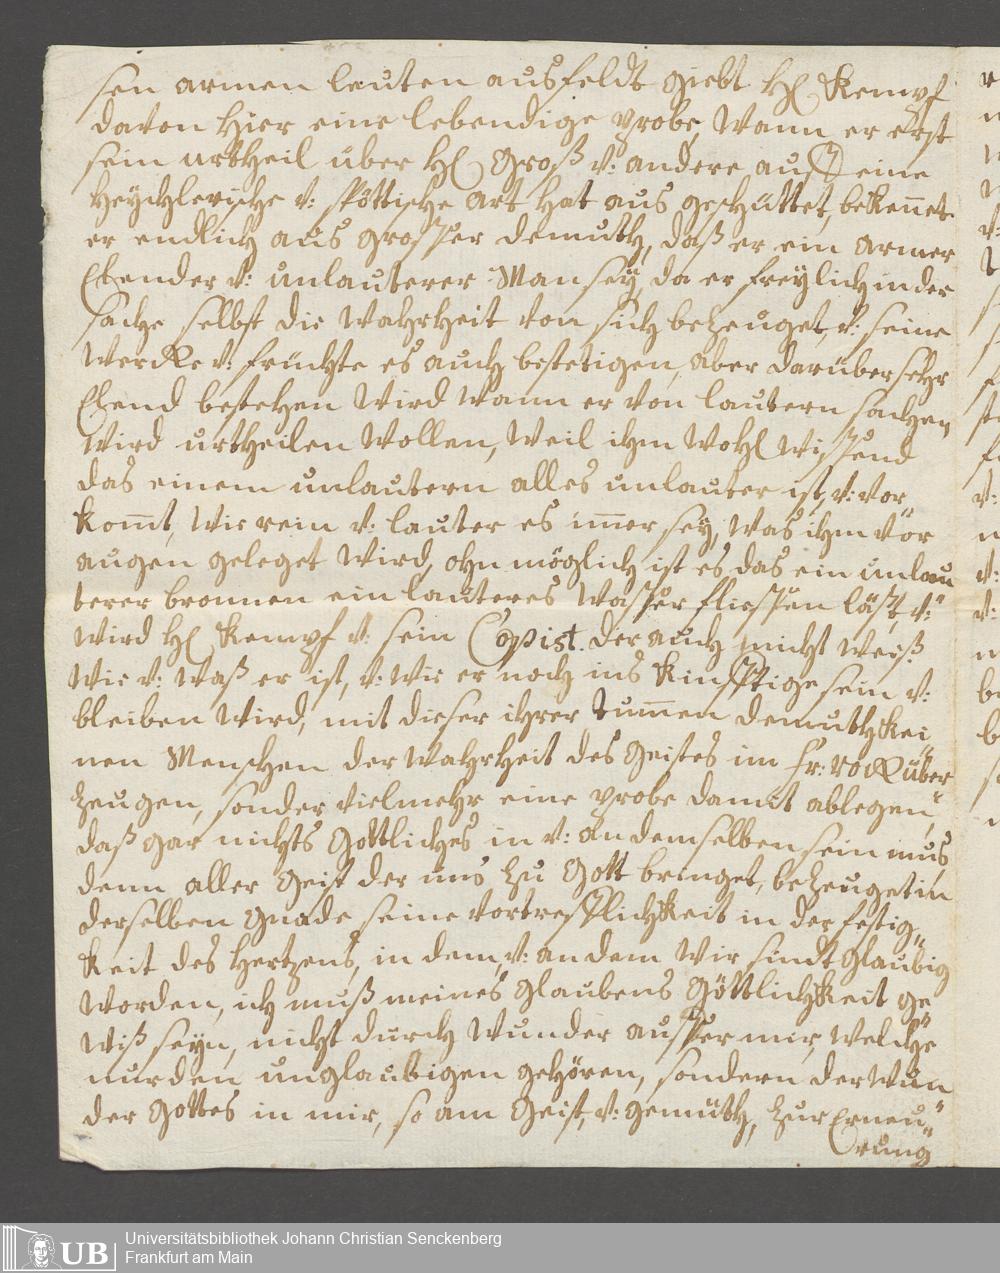 sen armen leuten ausfeldt giebt H. Kempf
davon hier eine lebendige probe, Wann er erst
sein urtheil über H. Groß v: andere auf eine
heüchlerische v: spöttische art hat aus geschüttet, bekennet
er endlich aus grosser demuth, daß er ein armer
Elender v: unlauterer Man seÿ, da er freÿlich in der
sache selbst die Wahrheit von sich bezeuget, v: seine
Wercke v: früchte es auch bestetigen, aber darüber sehr
Elend bestehen Wird Wann er von lautern sachen
Wird urtheilen Wollen, Weil ihm Wohl Wissend
das einem unlautern alles unlauter ist, v: vor
kom̄t, Wie rein v: lauter es im̄er seÿ, Was ihm vor
augen geleget Wird, ohn möglich ist es das ein unlau
terer bronnen ein lauteres Wasser fliessen läst, v:
Wird H. Kempf v: sein Copist. der auch nicht Weiß
Wie v: Waß er ist, v: Wie er noch ins künfftige sein v:
bleiben Wird, mit dieser ihrer tum̄en demuth kei
nen Menschen der Wahrheit des Geistes im Hr: Rock über
zeugen, sonder vielmehr eine probe damit ablegen,
daß gar nichts Göttliches in v: an demselben sein mus,
denn aller Geist der uns zu Gott bringet, bezeuget in
derselben Gnade seine vortrefflichkeit in der festig„
keit des Hertzens, in dem, v: an dem Wir sindt glaubig
Worden, ich muß meines glaubens Göttlichkeit ge„
Wiß seÿn, nicht durch Wunder ausser mir, Welche
nur den unglaubigen gehören, sondern der Wun
der Gottes in mir, so am Geist, v: gemüth, zur Erneu„
rung
Universitätsbibliothek Johann Christian Senckenberg
Frankfurt am Main
UB